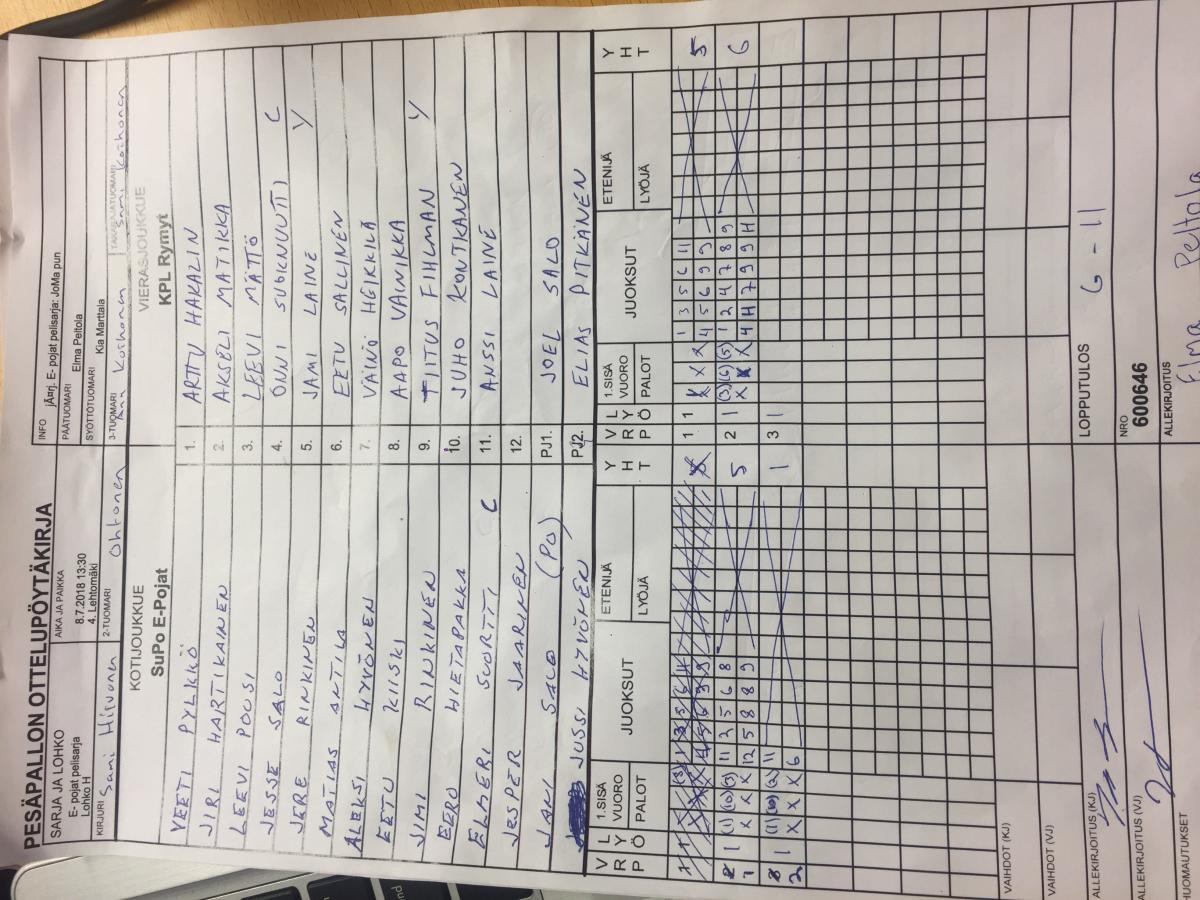 PESÄPALLON OTTELUPÖYTÄKIRJA
SARJA JA LOHKO
E- pojat pelisarja
Lohko H
AIKA JA PAIKKA
8.7.2018 13:30
4. Lehtomäki
INFO järj. E- pojat pelisarja: JoMa pun
PÄÄTUOMARI Elma Peltola
SYÖTTÖTUOMARI Kia Marttala
KIRJURI Sami Hirvonen
2-TUOMARI Ohtonen
3-TUOMARI
TAKARAJATUOMARI Sami Korhonen
KOTIJOUKKUE
SuPo E-Pojat
VIERASJOUKKUE
KPL Rymyt
VEETI PYLKKÖ 1. ARTTU HAKALIN
JIRI HARTIKAINEN 2. AKSELI MATIKKA
LEEVI POUSI 3. LEEVI MÄTTÖ
JESSE SALO 4. ONNI SUBIKNUUTI C
JERE RINKINEN 5. JAMI LAINE Y
MATIAS ANTILA 6. EETU SALLINEN
ALEKSI HYVÖNEN 7. VÄINÖ HEIKKILÄ
EETU KIISKI 8. AAPO VAINIKKA
JIMI RINKINEN 9. TIITUS FIHLMAN Y
EERO HIETAPAKKA 10. JUHO KONTKANEN
ELMERI SUORTTI C 11. ANSSI LAINE
JESPER JAARINEN 12.
JANI SALO (PO) PJ1. JOEL SALO
JUSSI HYVÖNEN PJ2. ELIAS PITKÄNEN
V R P L Y Ö 1.SISÄ VUORO PALOT JUOKSUT ETENIJÄ LYÖJÄ Y H T V R P L Y Ö 1.SISÄ VUORO PALOT JUOKSUT ETENIJÄ LYÖJÄ Y H T
1 1 X X 1 3 5 6 11 5
4 5 6 9 9
1 1 (1) (6) (9) 11 3 5 6 8 5 2 1 (3) (6) (5) 1 2 4 7 8 9 6
X X X 12 5 8 8 9 X X X 4 4 7 9 9 11
2 1 X X X 11 1 3 1
6
VAIHDOT (KJ)
VAIHDOT (VJ)
LOPPUTULOS 6 - 11
ALLEKIRJOITUS (KJ)
NRO
600646
ALLEKIRJOITUS (VJ)
ALLEKIRJOITUS
Elma Peltola
HUOMAUTUKSET